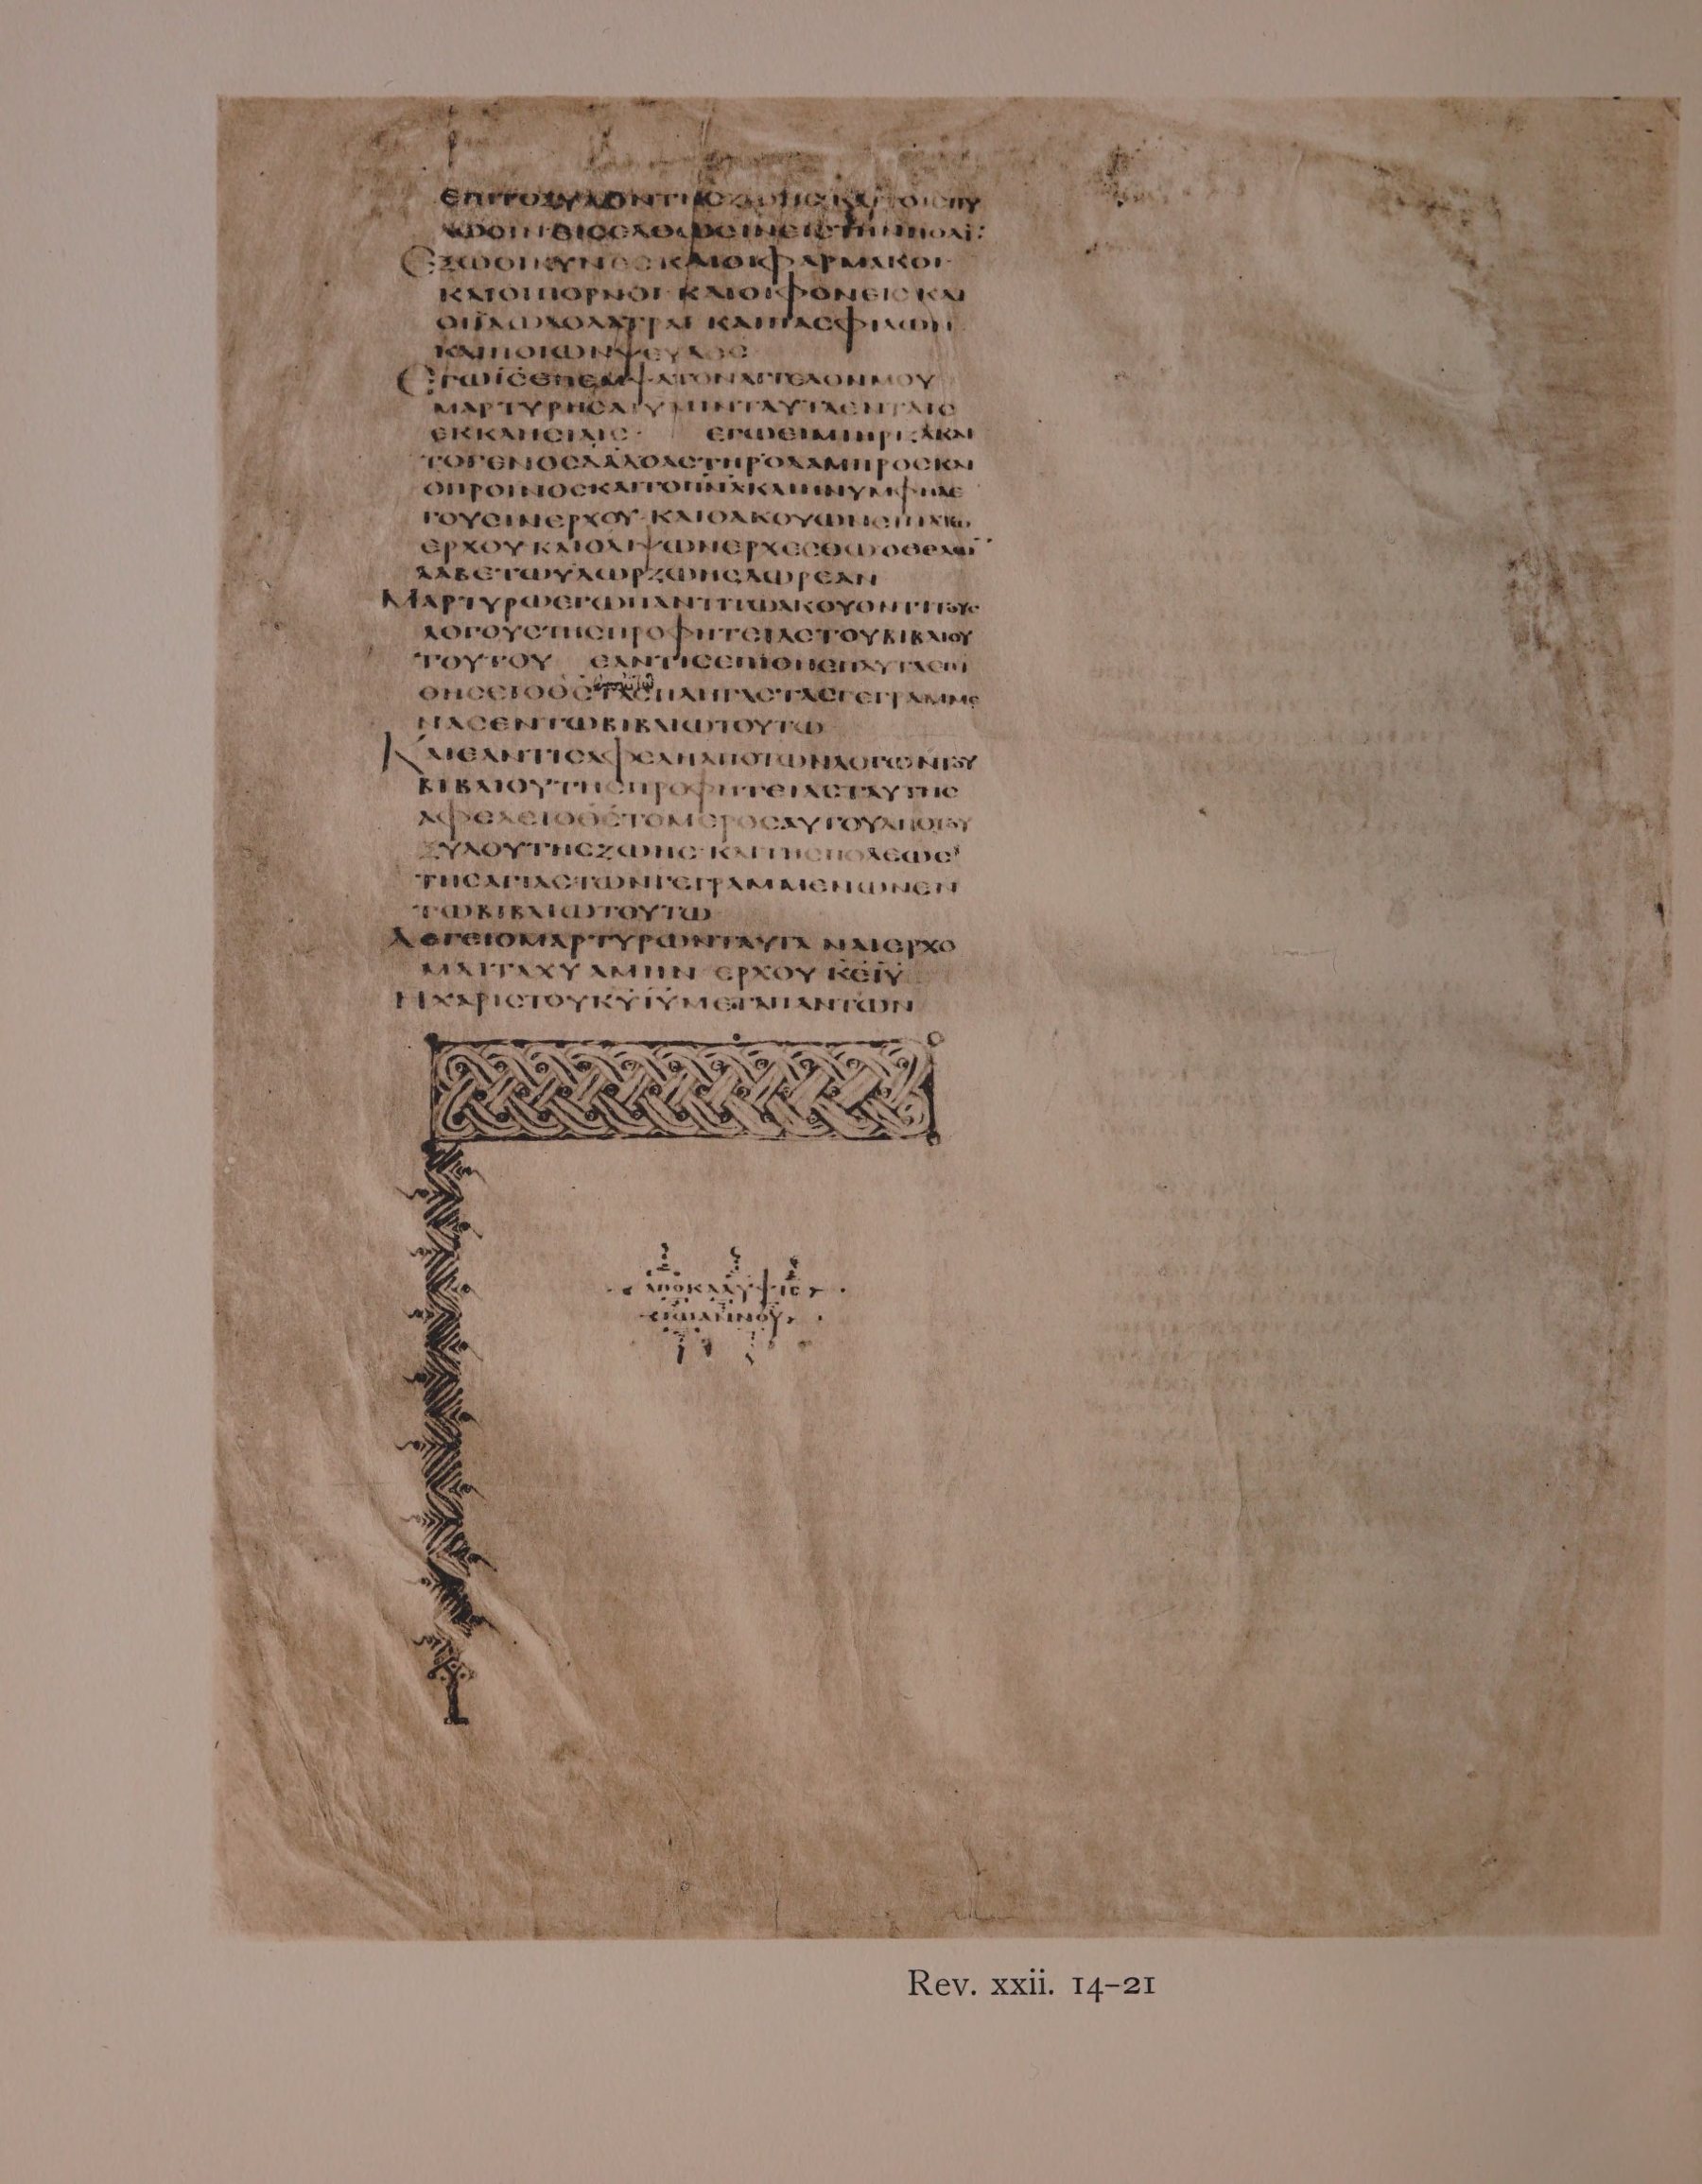 ΕΠΙΤΟΞΥΛΟΝΤΗΣΖΩΗΣΚΑΙΤΟΙΣΠΥ
ΛΩΣΙΝΕΙΣΕΛΘΩΣΙΝΕΙΣΤΗΝΠΟΛΙ
ΕΞΩΟΙΚΥΝΕΣΚΑΙΟΙΦΑΡΜΑΚΟΙ
ΚΑΙΟΙΠΟΡΝΟΙ ΚΑΙΟΙΦΟΝΕΙΣΚΑΙ
ΟΙΪΔΩΛΟΛΑΤΡΑΙ ΚΑΙΠΑΣΦΙΛΩΝ
ΚΑΙΠΟΙΩΝΨΕΥΔΟΣ
ΕΓΩΙΣΕΠΕΜΨΑΤΟΝΑΓΓΕΛΟΝΜΟΥ
ΜΑΡΤΥΡΗΣΑΙΥΜΙΝΤΑΥΤΑΕΝΤΑΙΣ
ΕΚΚΛΗΣΙΑΙΣ· ΕΓΩΕΙΜΙΗΡΙΖΑΚΑΙ
ΤΟΓΕΝΟΣΔΑΔΟΑΣΤΗΡΟΛΑΜΠΡΟΣΚΑΙ
ΟΠΡΟΙΝΟΣΚΑΙΤΟΠΝΑΚΑΙΗΝΥΜΦΗΛΕ
ΓΟΥΣΙΝΕΡΧΟΥ·ΚΑΙΟΑΚΟΥΩΝΕΙΠΑΤΩ
ΕΡΧΟΥΚΑΙΟΔΙΨΩΝΕΡΧΕΣΘΩΟΘΕΛΩΝ
ΛΑΒΕΤΩΥΔΩΡΖΩΗΣΔΩΡΕΑΝ
ΜΑΡΤΥΡΩΕΓΩΠΑΝΤΙΤΩΑΚΟΥΟΝΤΙΤΟΥΣ
ΛΟΓΟΥΣΤΗΣΠΡΟΦΗΤΕΙΑΣΤΟΥΒΙΒΛΙΟΥ
ΤΟΥΤΟΥ ΕΑΝΤΙΣΕΠΙΘΗΕΠΑΥΤΑΕΠΙ
ΘΗΣΕΙΟΘΣΤΑΣΠΛΗΓΑΣΤΑΣΓΕΓΡΑΜΜΕ
ΝΑΣΕΝΤΩΒΙΒΛΙΩΤΟΥΤΩ
ΚΑΙΕΑΝΤΙΣΑΦΕΛΗΑΠΟΤΩΝΛΟΓΩΝΤΟΥ
ΒΙΒΛΙΟΥΤΗΣΠΡΟΦΗΤΕΙΑΣΤΑΥΤΗΣ
ΑΦΕΛΕΙΟΘΣΤΟΜΕΡΟΣΑΥΤΟΥΑΠΟΤΟΥ
ΞΥΛΟΥΤΗΣΖΩΗΣ·ΚΑΙΤΗΣΠΟΛΕΩΣ
ΤΗΣΑΓΙΑΣΤΩΝΓΕΓΡΑΜΜΕΝΩΝΕΝ
ΤΩΒΙΒΛΙΩΤΟΥΤΩ
ΛΕΓΕΙΟΜΑΡΤΥΡΩΝΤΑΥΤΑ ΝΑΙΕΡΧΟ
ΜΑΙΤΑΧΥ ΑΜΗΝ ΕΡΧΟΥ ΚΕΙΥ
ΗΧΑΡΙΣΤΟΥΚΥΙΥΜΕΤΑΠΑΝΤΩΝ
ΑΠΟΚΑΛΥΨΙΣ
ΙΩΑΝΝΟΥ
Rev. xxii. 14–21